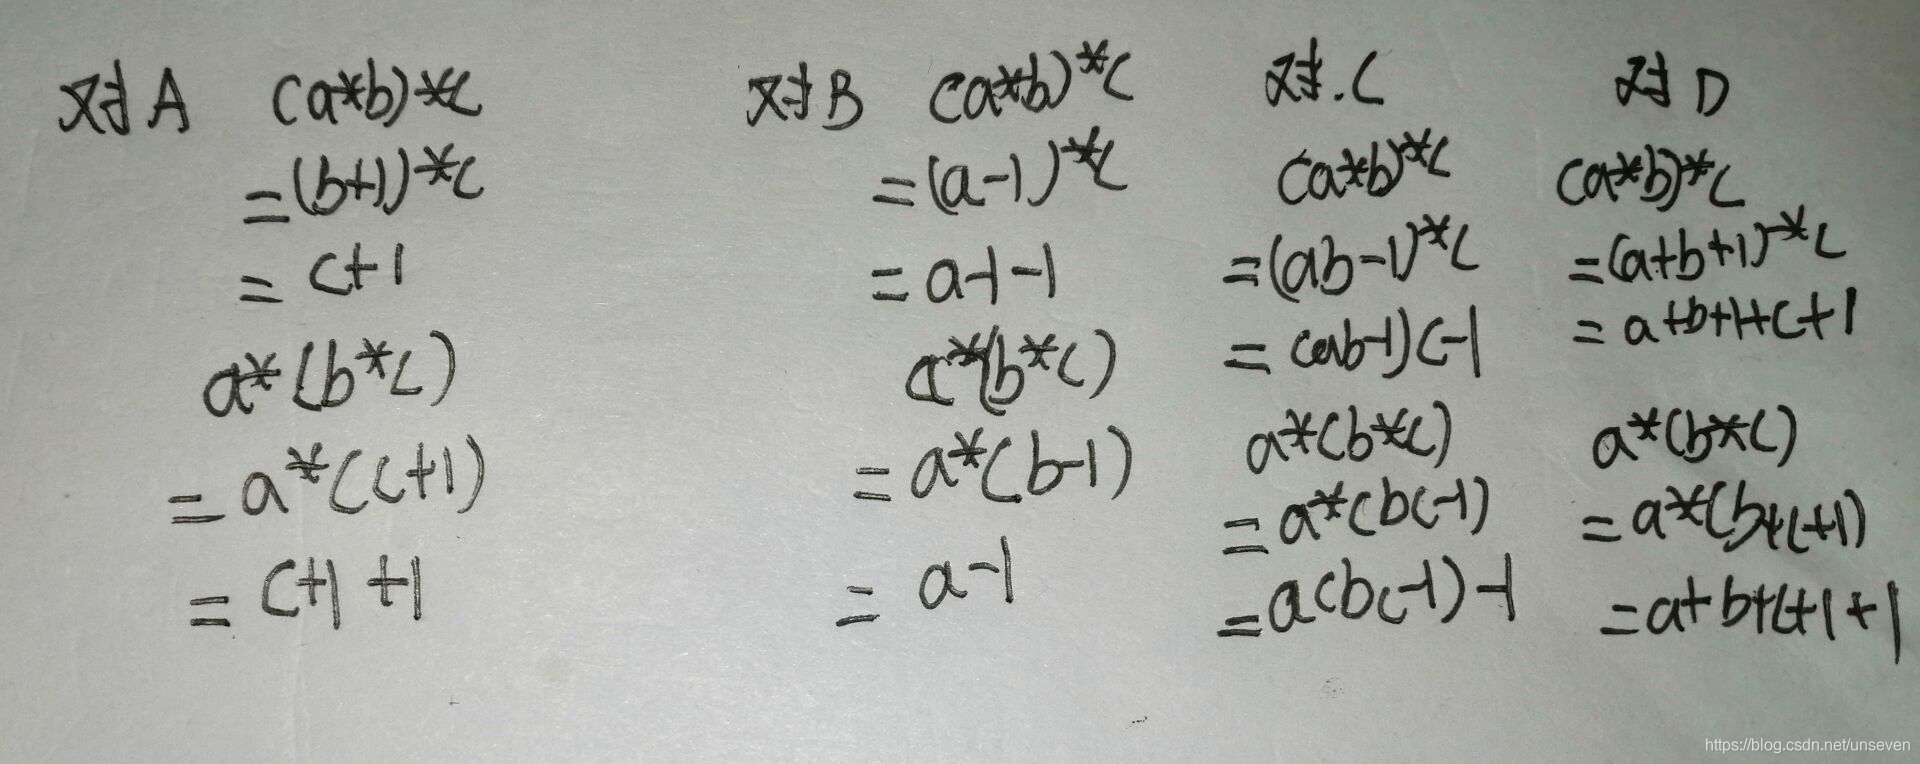 对A (a*b)*c
=(b+1)*c
= c+1
a*(b*c)
= a*(c+1)
= c+1+1
对B (a*b)*c
=(a-1)*c
= a-1-1
a*(b*c)
= a*(b-1)
= a-1
对.C
(a*b)*c
=(ab-1)*c
= (ab-1)c-1
a*(b*c)
= a*(bc-1)
= a(bc-1)-1
对D
(a*b)*c
=(a+b+1)*c
= a+b+1+c+1
a*(b*c)
= a*(b+c+1)
= a+b+c+1+1
https://blog.csdn.net/unseven